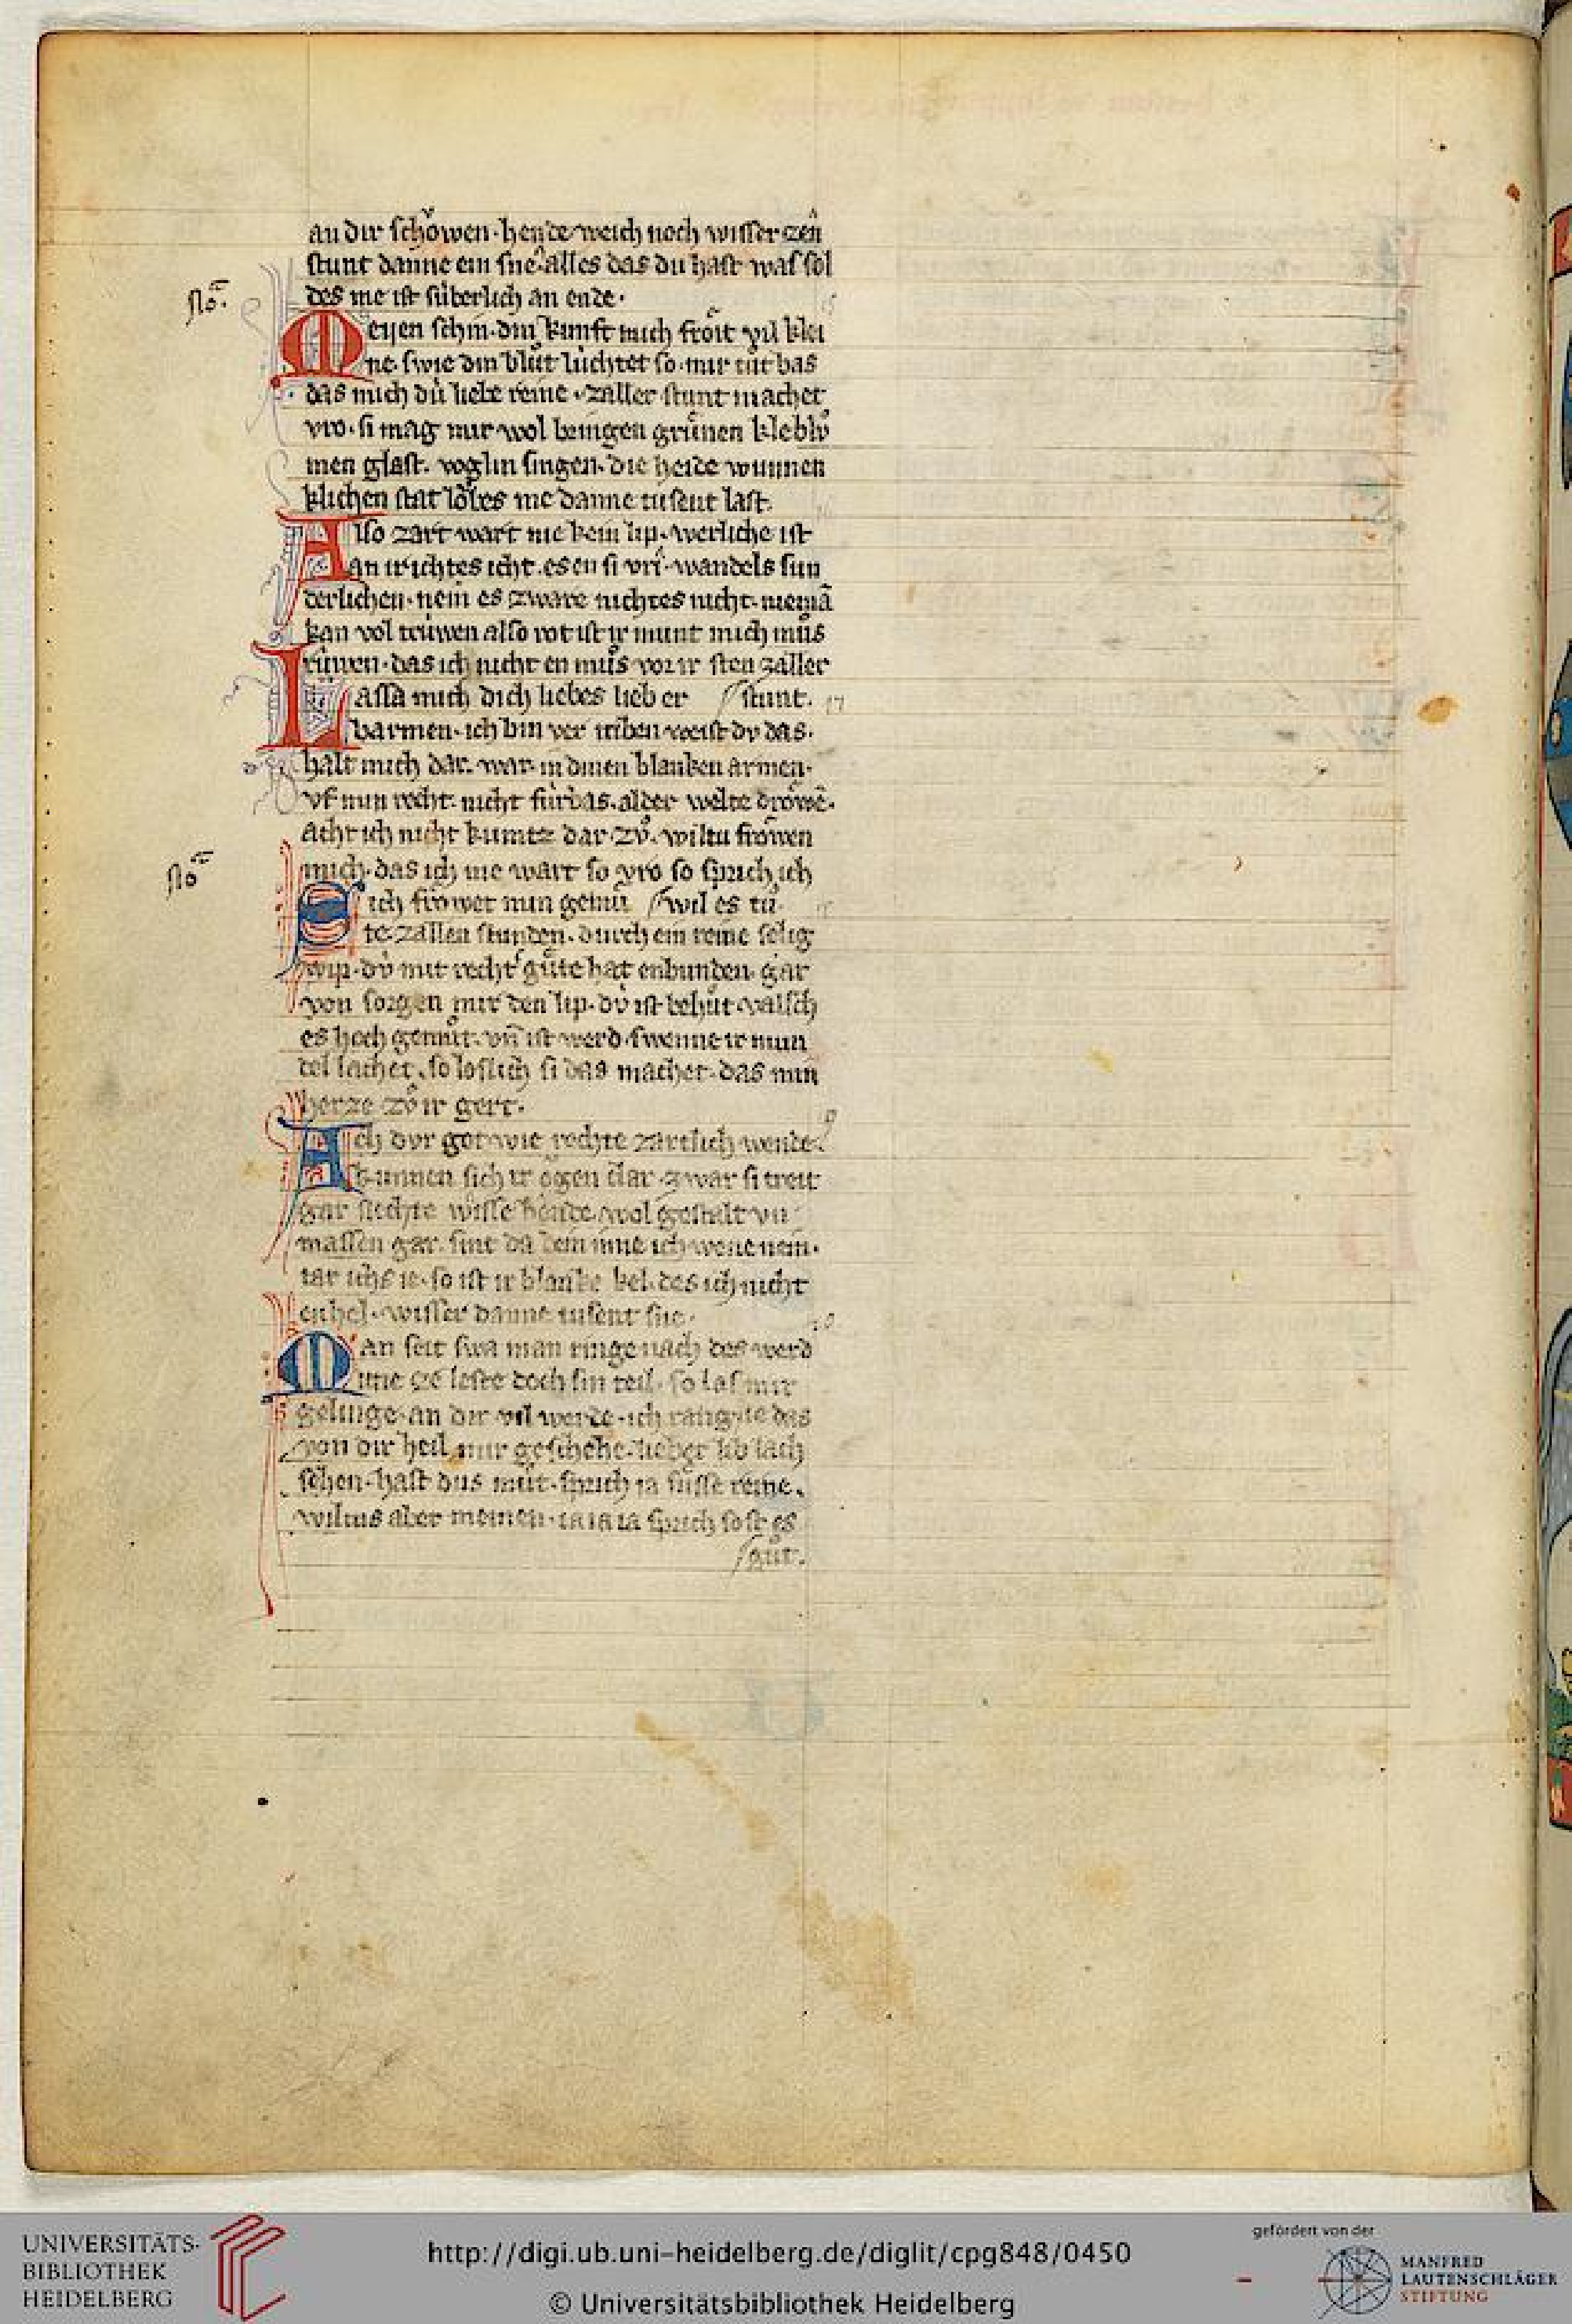 an dir schoͮwen · hende weich noch wisser zen
stunt danne ein sne · alles das du hast was sol
des me ist súberlich an ende ·
No
Meyen schin · din kunft mich froͤit vil klei
ne · swie din bluͦt lúchtet so · mir tuͦt bas
das mich dú liebe reine · zaller stunt machet
vro · si mag mir wol bringen gruͤnen kle bluͦ
men glast · voglin singen · die heide wunnen
klichen stat lobes me danne tusent last ·
Also zart wart nie kein lip · werliche ist
an ir ichtes icht · es en si vri · wandels sun
derlichen · nein es zware nichtes nicht · niemā
kan vol trúwen also rot ist ir munt mich muͦs
rúwen · das ich nicht en muͦs vor ir sten zaller
Lassa mich dich liebes lieb er stunt · 17
barmen · ich bin ver triben weist dv das ·
halt mich dar · war · in dinen blanken armen ·
vf min recht · nicht fúrbas · al der welte droͤwē ·
acht ich nicht kumtz dar zvͦ · wiltu froͤwen
No
mich · das ich nie wart so vro so sprich ich
Sich froͤwet min gemuͤ wil es tuͦ ·
te zallen stunden · durch ein reine selig
wip · dv́ mit rechter guͤte hat enbunden · gar
von sorgen mir den lip · dv́ ist behuͦt valsch
es hoch gemuͦt · vn̄ ist werd · swenne ir mun
del lachet · so loslich si das machet · das min
herze zvͦ ir gert ·
Ach dur got wie rechte zartlich wenden
kunnen sich ir oͮgen clar · zwar si treit
gar slechte wisse hende · wol gestalt vn̄
massen gar · sint da bein inne ich wene nein ·
tar ichs ie · so ist ir blanke kel · des ich nicht
enhel · wisser danne tusent sne ·
Man seit swa man ringe nach des werd
ime ze leste doch sin teil · so las mir
gelinge · an dir vil werde · ich range ie das
von dir heil mir geschehe · lieber lib lach
sehen · hast dus muͦt · sprich ia suͤsse reine ·
wiltus aber meinen · ia ia ia sprich so ist es
guͦt ·
UNIVERSITÄTS-
BIBLIOTHEK
HEIDELBERG
http://digi.ub.uni-heidelberg.de/diglit/cpg848/0450
© Universitätsbibliothek Heidelberg
gefördert von der
MANFRED
LAUTENSCHLÄGER
STIFTUNG